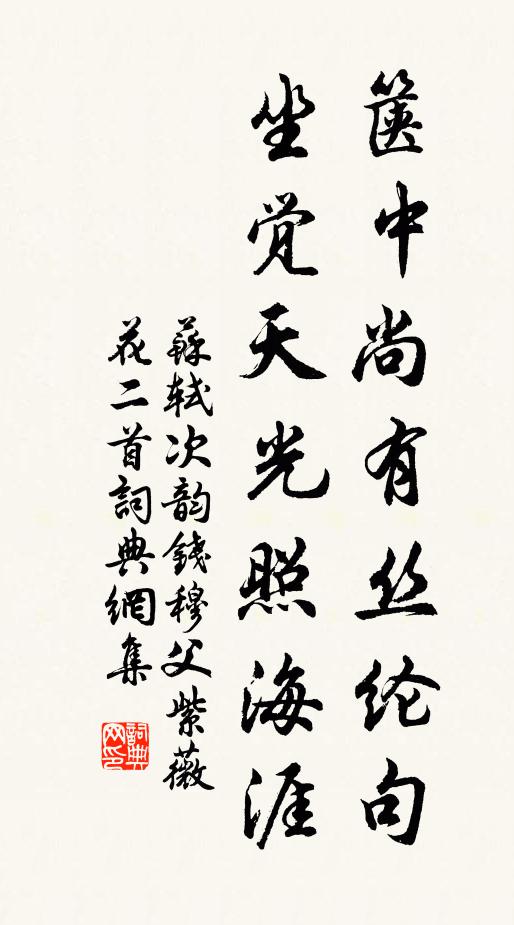 箧中尚有丝纶句
坐觉天光照海涯
蘇轼次韵錢穆父紫薇
花二首詞典網集
詞典
网印